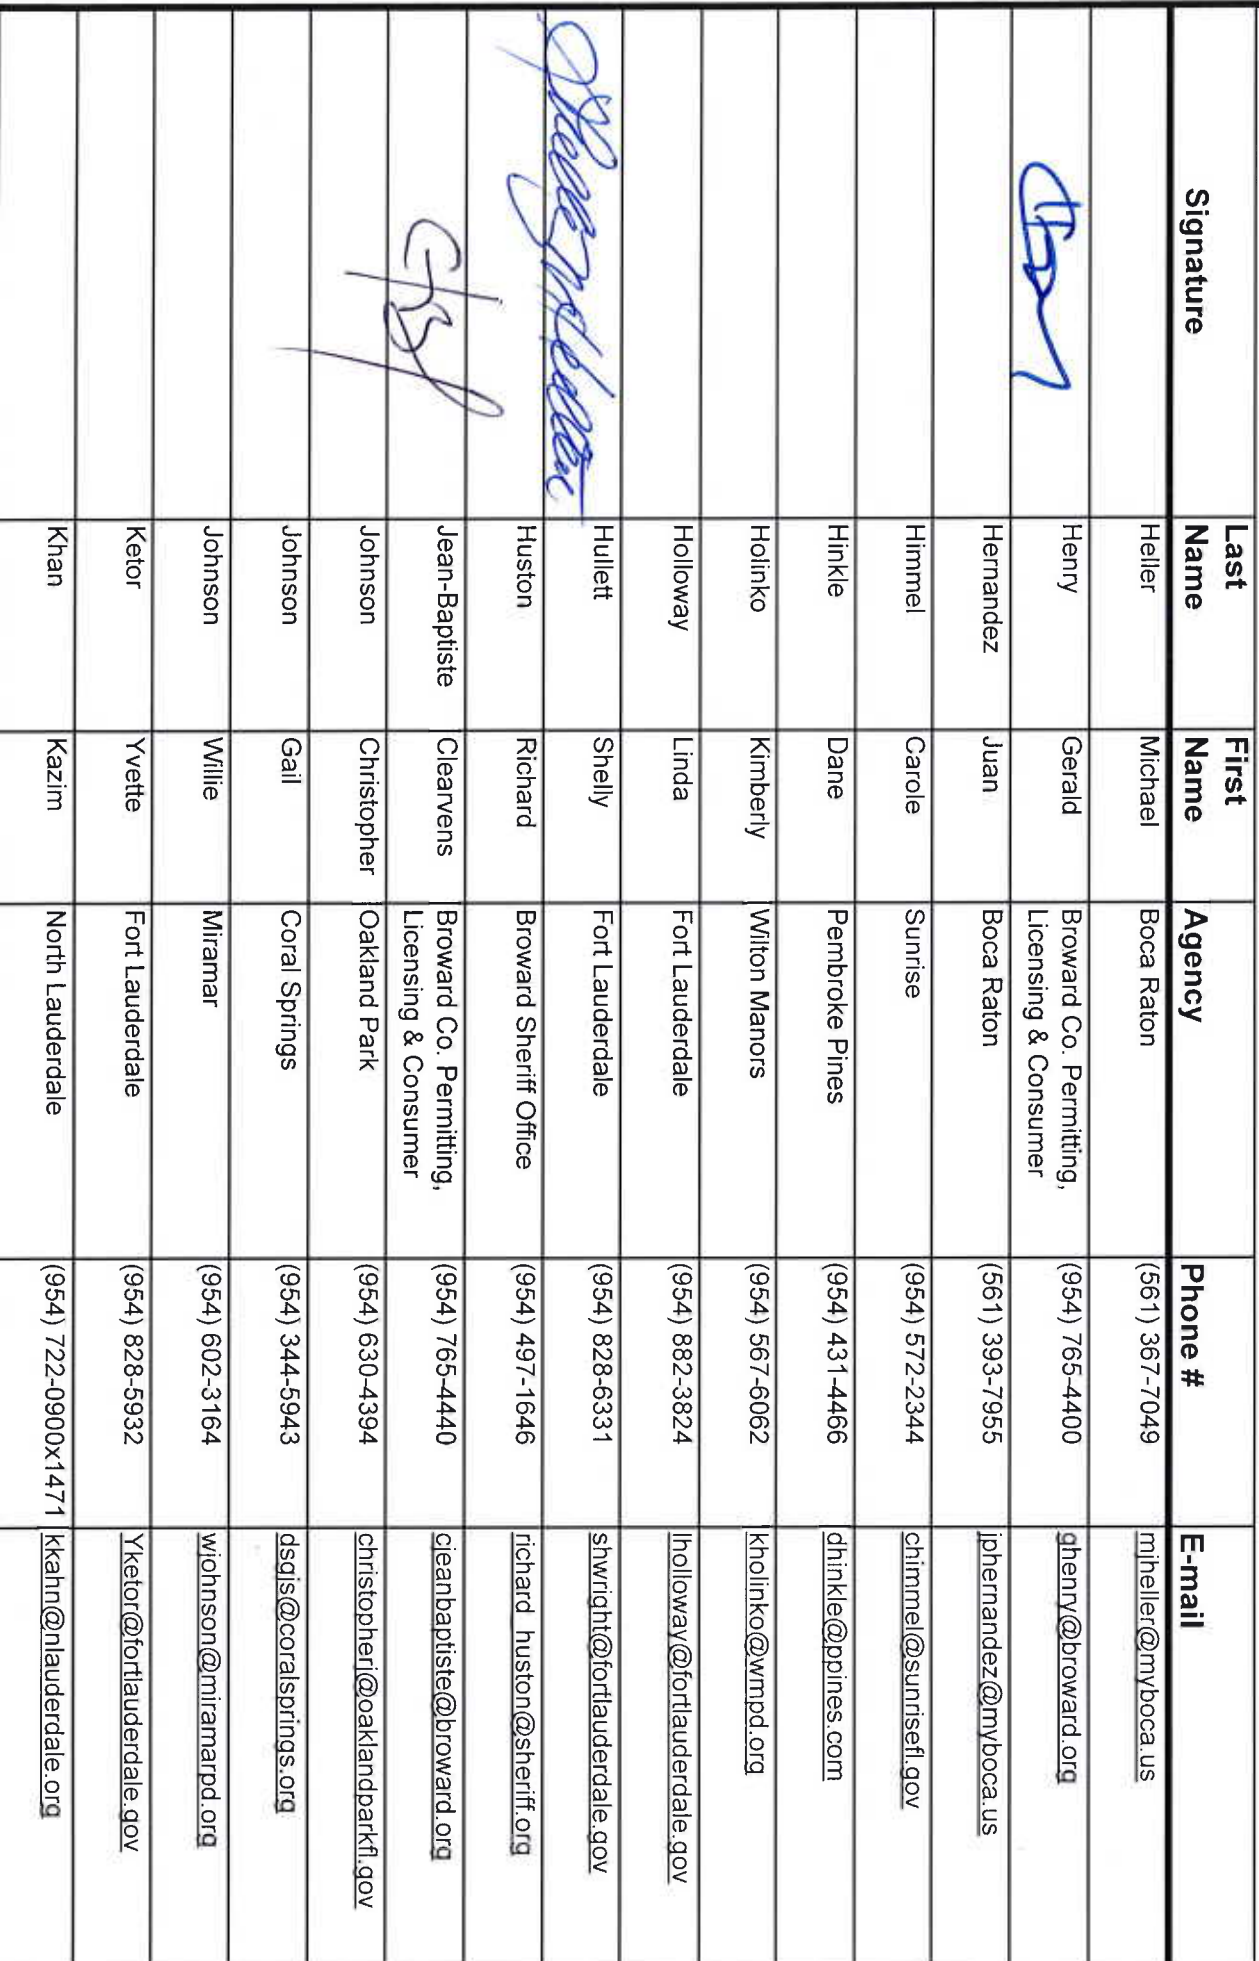 Signature Last Name First Name Agency Phone # E-mail
Heller Michael Boca Raton (561) 367-7049 mjheller@myboca.us
Henry Gerald Broward Co. Permitting, (954) 765-4400 ghenry@broward.org
Licensing & Consumer
Hernandez Juan Boca Raton (561) 393-7955 jphernandez@myboca.us
Himmel Carole Sunrise (954) 572-2344 chimmel@sunrisefl.gov
Hinkle Dane Pembroke Pines (954) 431-4466 dhinkle@ppines.com
Holinko Kimberly Wilton Manors (954) 567-6062 kholinko@wmpd.org
Holloway Linda Fort Lauderdale (954) 882-3824 lholloway@fortlauderdale.gov
Hullett Shelly Fort Lauderdale (954) 828-6331 shwright@fortlauderdale.gov
Huston Richard Broward Sheriff Office (954) 497-1646 richard_huston@sheriff.org
Jean-Baptiste Clearvens Broward Co. Permitting, (954) 765-4440 cjeanbaptiste@broward.org
Licensing & Consumer
Johnson Christopher Oakland Park (954) 630-4394 christopherj@oaklandparkfl.gov
Johnson Gail Coral Springs (954) 344-5943 dsgjs@coralsprings.org
Johnson Willie Miramar (954) 602-3164 wjohnson@miramarpd.org
Ketor Yvette Fort Lauderdale (954) 828-5932 Yketor@fortlauderdale.gov
Khan Kazim North Lauderdale (954) 722-0900x1471 kkahn@nlauderdale.org